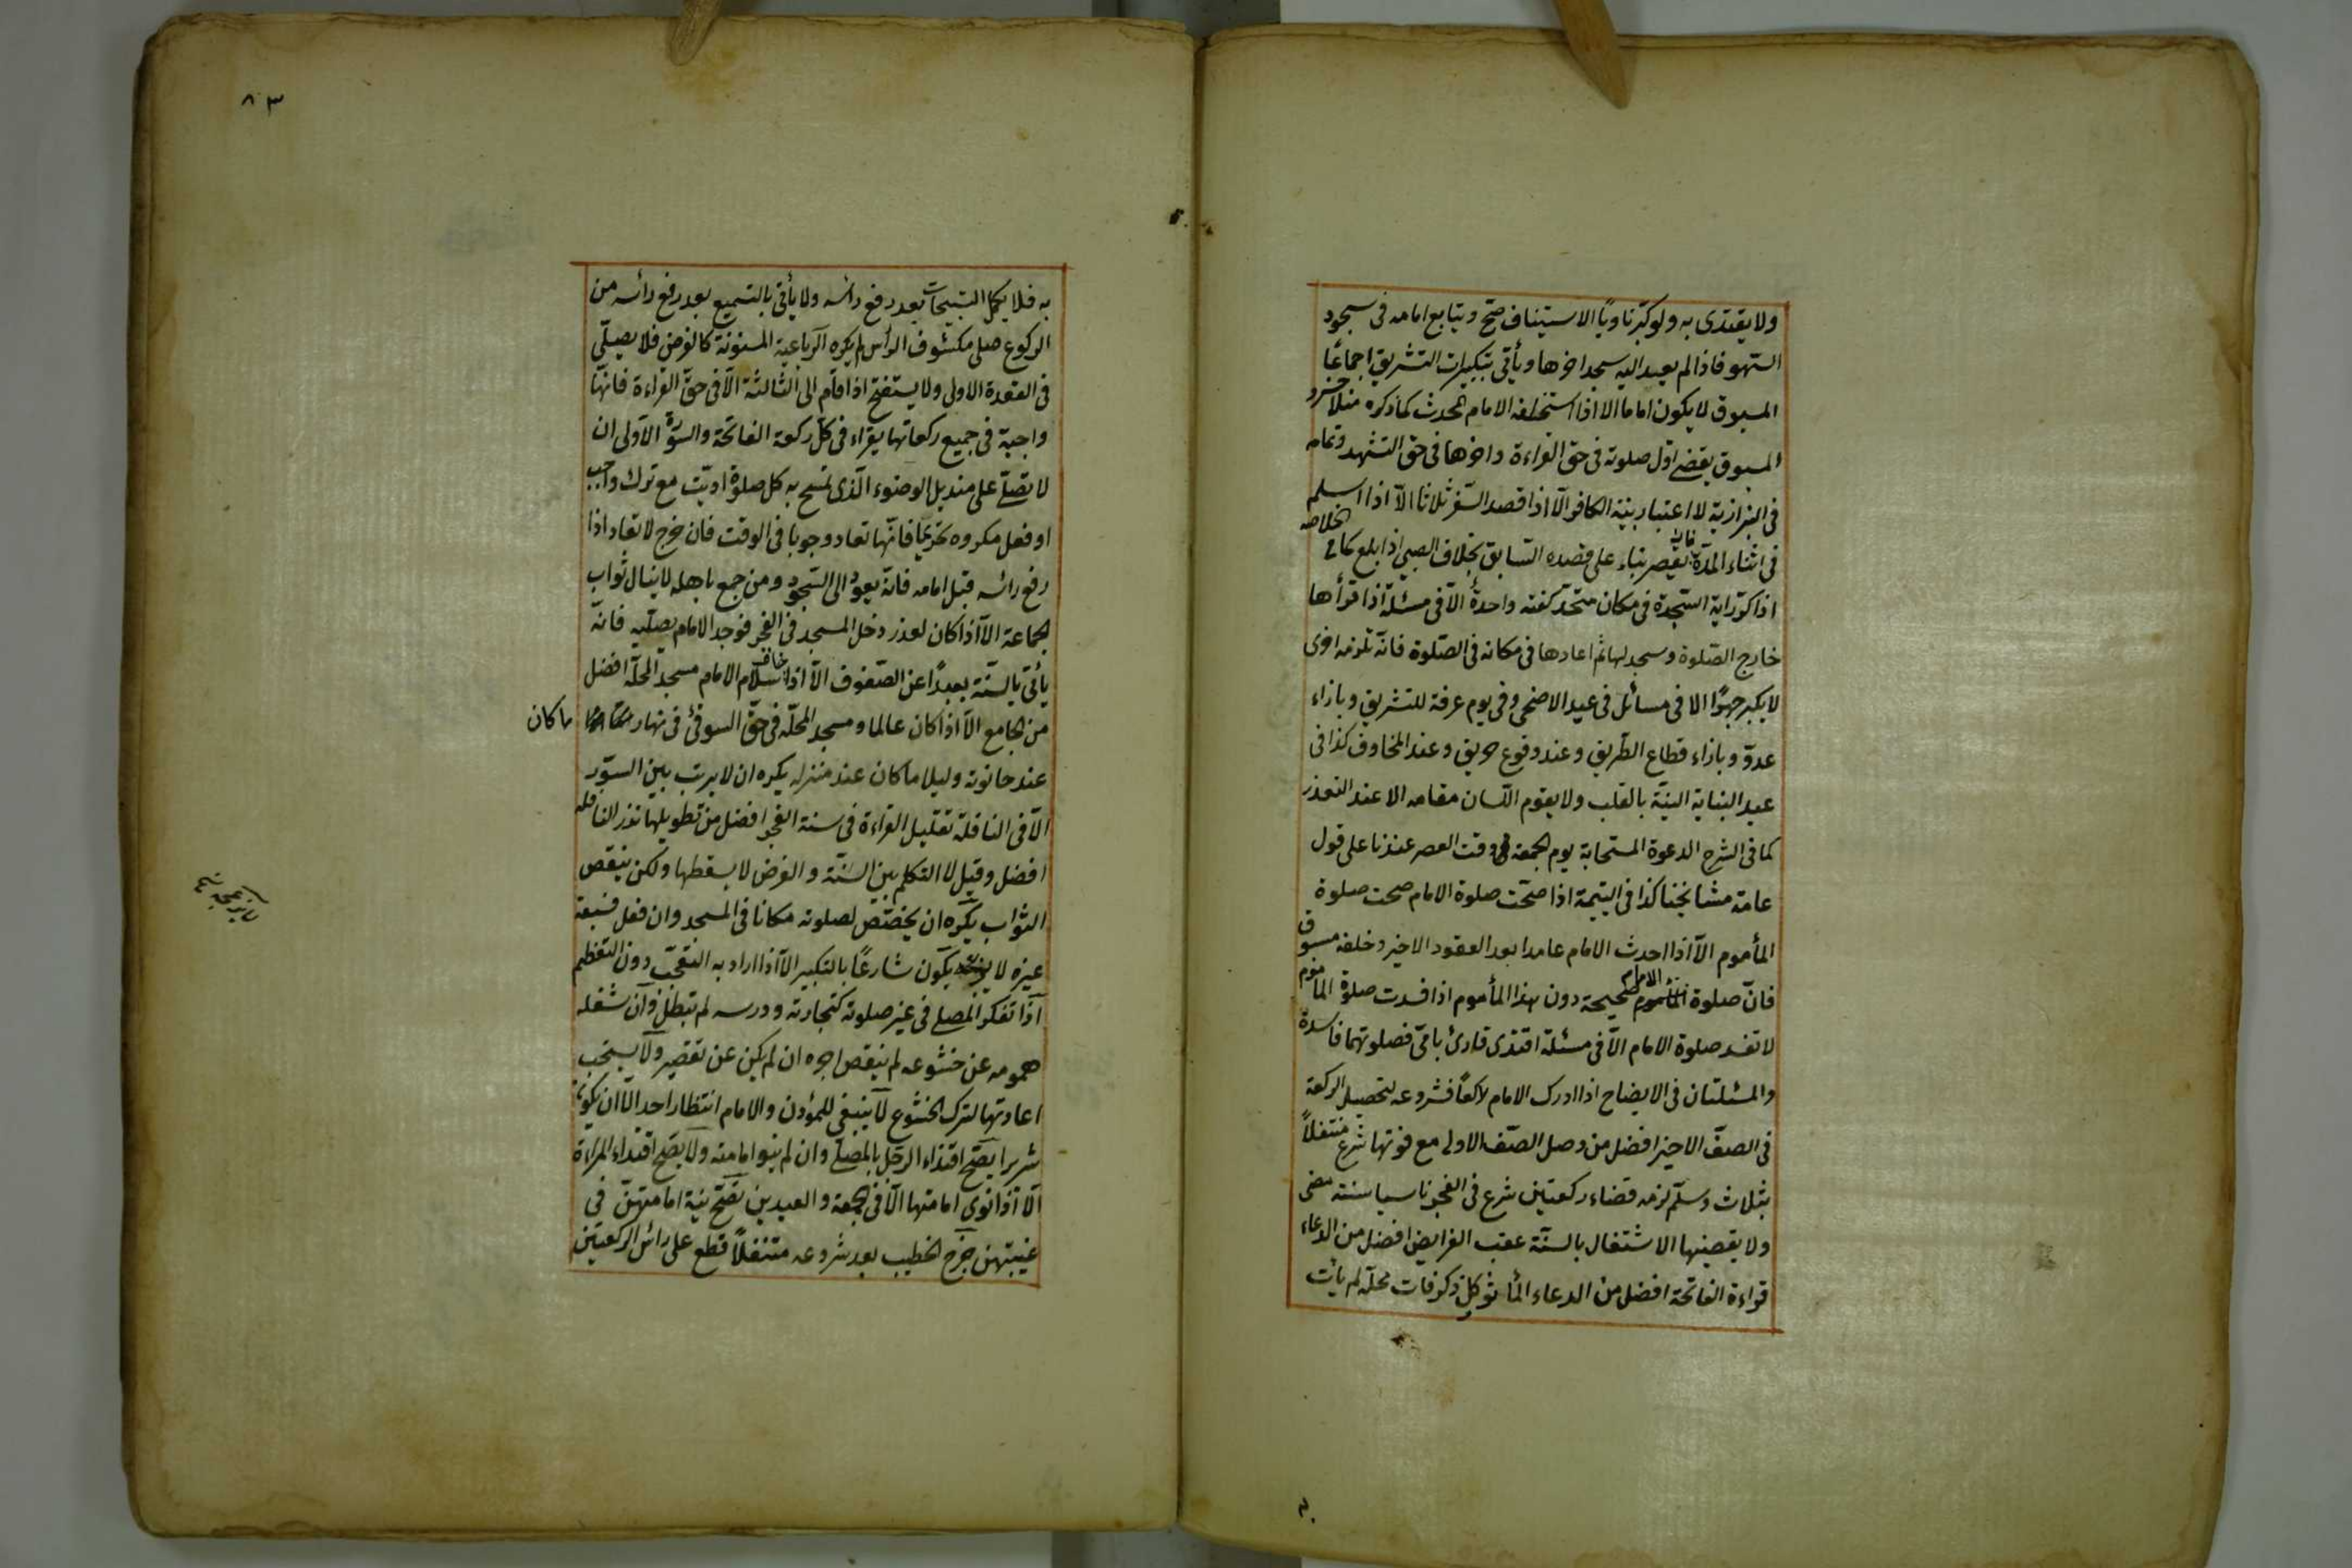 ولا يقتدى به ولو كبّر ناويًا الاستيناف صحّ ويتابع امامه فى سجود
السّهو فاذا لم يعيد اليه سجد اخرها ويأتى بتكبيرات التشريق اجماعًا
المسبوق لا يكون اماما الا اذا استخلفه الامام المحدث كما ذكره منلا خسرو
المسبوق يقضى اوّل صلوته فى حق القراءة واخرها فى حق التشهد وتمامه
فى البزازية لا اعتبار بنية الكافر الّا اذا قصد السّفر ثلاثا الّا اذا اسلم
فى اثناء المدّة فانّه يقصر بناء على قصده السّابق بخلاف الصبى اذا بلغ كما فى الخلاصه
اذا كرّر اية السّجدة فى مكان متّحد كفته واحدة الّا فى مسئلة اذا قرأها
خارج الصّلوة وسجد لها ثم اعادها فى مكانه فى الصّلوة فانّه تلزمه اخرى
لا يكبر جهرًا الا فى مسائل فى عيد الاضحى وفى يوم عرفة للتشريق وبازاء
عدوّ وبازاء قطاع الطّريق وعند وقوع حريق وعند المخاوف كذا فى
عيد البناية النيّة بالقلب ولا يقوم اللّسان مقامه الا عند التعذر
كما فى الشرح الدعوة المستجابة يوم الجمعة فى وقت العصر عندنا على قول
عامة مشايخنا كذا فى اليتيمة اذا صحّت صلوة الامام صحت صلوة
المأموم الّا اذا احدث الامام عامدا بعد القعود الاخير وخلفه مسبوق
فانّ صلوة الامام صحيحة دون هذا المأموم اذا فسدت صلوة المأموم
لا تفسد صلوة الامام الّا فى مسئلة اقتدى قارئ بامّى فصلوتهما فاسدة
والمسئلتان فى الايضاح اذا ادرك الامام راكعًا فشروعه لتحصيل الركعة
فى الصفّ الاخير افضل من وصل الصّف الاول مع فوتها شرع متنفلاً
بثلاث وسلّم لزمه قضاء ركعتين شرع فى الفجر ناسيا سنته مضى
ولا يقضيها الاشتغال بالسنّة عقب الفرايض افضل من الدعاء
قراءة الفاتحة افضل من الدعاء المأثور كل ذكر فات محلّه لم يأت
٨٣
به فلا يكمل التسبيحات بعد رفع رأسه ولا يأتى بالتسميع بعد رفع رأسه من
الركوع صلى مكشوف الرأس لم يكره الرّباعية المسنونة كالفرض فلا يصلّى
فى القعدة الاولى ولا يستفتح اذا اقام الى الثالثة الّا فى حقّ القراءة فانّها
واجبة فى جميع ركعاتها يقراء فى كلّ ركعة الفاتحة والسّورة الاولى ان
لا تصلّى على منديل الوضوء الّذى تمسح به كل صلوة ادّيت مع ترك واجب
او فعل مكروه تحريما فانّها تعاد وجوبا فى الوقت فان خرج لا تعاد اذا
رفع رأسه قبل امامه فانّه يعود الى السّجود ومن جمع باهله لا ينال ثواب
الجماعة الّا اذا كان لعذر دخل المسجد فى الفجر فوجد الامام يصلّيه فانّه
يأتى بالسنّة بعيدًا عن الصّفوف الّا اذا خاف سلام الامام مسجد المحلّة افضل
من الجامع الّا اذا كان عالما ومسجد المحلّه فى حقّ السوقىّ فى نهار ما كان
عند حانوته وليلا ما كان عند منزله يكره ان لا يرتب بين السوّر
الّا فى النافلة تقليل القراءة فى سنة الفجر افضل من تطويلها نذر النافله
افضل وقيل لا التكلم بين السّنّة والفرض لا يسقطها ولكن ينقص
الثواب يكره ان يختصّ لصلوته مكانا فى المسجد وان فعل فسبقه
غيره لا يزعجه يكون شارعًا بالتكبير الّا اذا اراد به التعجّب دون التعظيم
اذا تفكر المصلى فى غير صلوته كتجارته ودرسه لم تبطل وان شغله
همومه عن خشوعه لم ينقص اجره ان لم يكن عن تقصير ولا يستحب
اعادتها لترك الخشوع لا ينبغى للمؤذن والامام انتظار احد الّا ان يكون
شريرا يصّح اقتداء الرّجل بالمصلّى وان لم ينو امامته ولا يصّح اقتداء المراءة
الّا اذا نوى امامتها الّا فى الجمعة والعيدين تصّح نية امامتهنّ فى
غيبتهن خرج الخطيب بعد شروعه متنفلاً قطع على رأس الركعتين